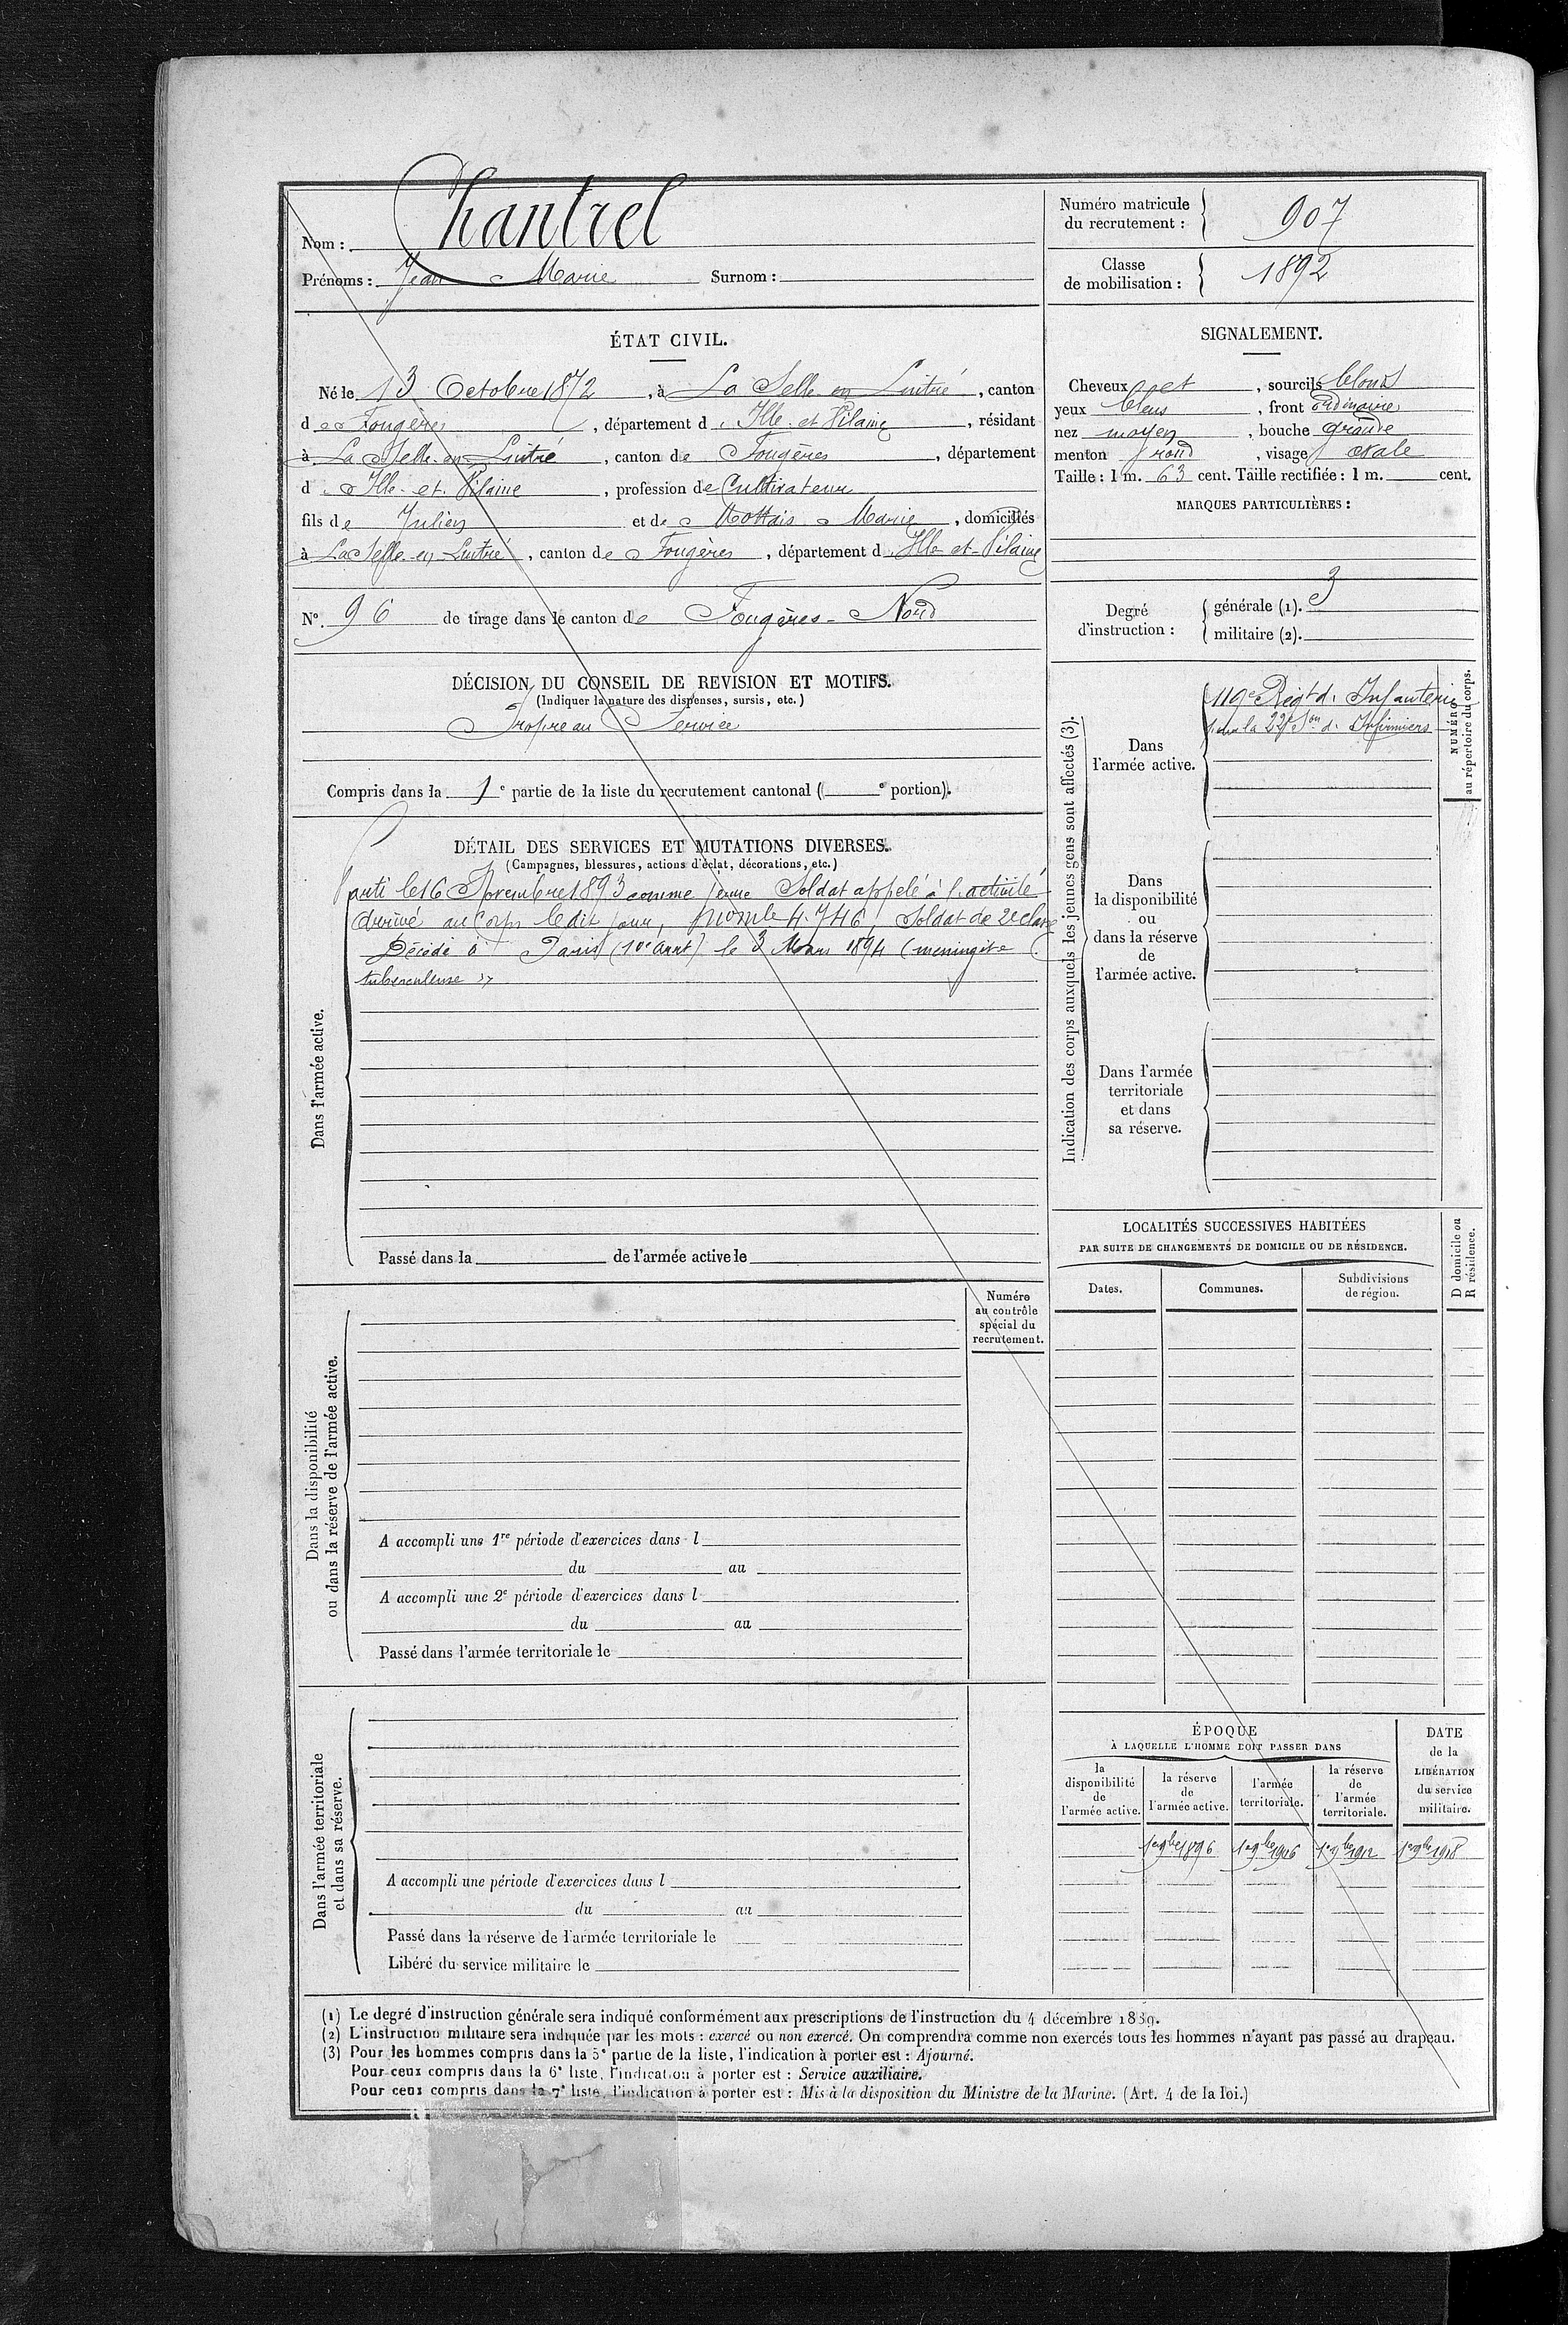 Nom : Chantrel
Prénoms : Jean Marie Surnom :
Numéro matricule
du recrutement : 907
Classe
de mobilisation : 1892
ÉTAT CIVIL.
Né le 13 Octobre 1872, à La Selle en Luitré, canton
de Fougères, département d'Ille et Vilaine, résidant
à La Selle-en-Luitré, canton de Fougères, département
d'Ille-et-Vilaine, profession de Cultivateur
fils de Julien et de Mottais Marie, domiciliés
à La Selle-en-Luitré, canton de Fougères, département d'Ille-et-Vilaine
N° 96 de tirage dans le canton de Fougères-Nord
SIGNALEMENT.
Cheveux et, sourcils blonds
yeux bleus, front ordinaire
nez moyen, bouche grande
menton rond, visage ovale
Taille : 1 m. 63 cent. Taille rectifiée : 1 m. cent.
MARQUES PARTICULIÈRES :
Degré
d'instruction :
générale (1). 3
militaire (2).
DÉCISION DU CONSEIL DE REVISION ET MOTIFS.
(Indiquer la nature des dispenses, sursis, etc.)
Propre au Service
Compris dans la 1e partie de la liste du recrutement cantonal ( e portion).
DÉTAIL DES SERVICES ET MUTATIONS DIVERSES.
(Campagnes, blessures, actions d'éclat, décorations, etc.)
Dans l'armée active.
Parti le 16 Novembre 1893 comme jeune Soldat appelé à l'activité
Arrivé au Corps le dit jour, no mle 4.746, Soldat de 2e classe
Décédé à Paris (10e arrt) le 3 Mars 1894 (méningite
tuberculeuse)
Passé dans la de l'armée active le
Indication des corps auxquels les jeunes gens sont affectés (3).
NUMÉRO
au répertoire du corps.
Dans
l'armée active.
119e Régt d'Infanterie
la 22e Son d'Infirmiers
Dans
la disponibilité
ou
dans la réserve
de
l'armée active.
Dans l'armée
territoriale
et dans
sa réserve.
LOCALITÉS SUCCESSIVES HABITÉES
PAR SUITE DE CHANGEMENTS DE DOMICILE OU DE RÉSIDENCE.
D domicile ou
R résidence.
Dates. Communes. Subdivisions
de région.
Numéro
au contrôle
spécial du
recrutement.
Dans la disponibilité
ou dans la réserve de l'armée active.
A accompli une 1re période d'exercices dans l
du au
A accompli une 2e période d'exercices dans l
du au
Passé dans l'armée territoriale le
Dans l'armée territoriale
et dans sa réserve.
A accompli une période d'exercices dans l
du au
Passé dans la réserve de l'armée territoriale le
Libéré du service militaire le
ÉPOQUE
À LAQUELLE L'HOMME DOIT PASSER DANS
la
disponibilité
de
l'armée active.
la réserve
de
l'armée active.
l'armée
territoriale.
la réserve
de
l'armée
territoriale.
DATE
de la
LIBÉRATION
du service
militaire.
1er 9bre 1896 1er 9bre 1906 1er 9bre 1912 1er 9bre 1918
(1) Le degré d'instruction générale sera indiqué conformément aux prescriptions de l'instruction du 4 décembre 1889.
(2) L'instruction militaire sera indiquée par les mots : exercé ou non exercé. On comprendra comme non exercés tous les hommes n'ayant pas passé au drapeau.
(3) Pour les hommes compris dans la 5e partie de la liste, l'indication à porter est : Ajourné.
Pour ceux compris dans la 6e liste, l'indication à porter est : Service auxiliaire.
Pour ceux compris dans la 7e liste, l'indication à porter est : Mis à la disposition du Ministre de la Marine. (Art. 4 de la loi.)